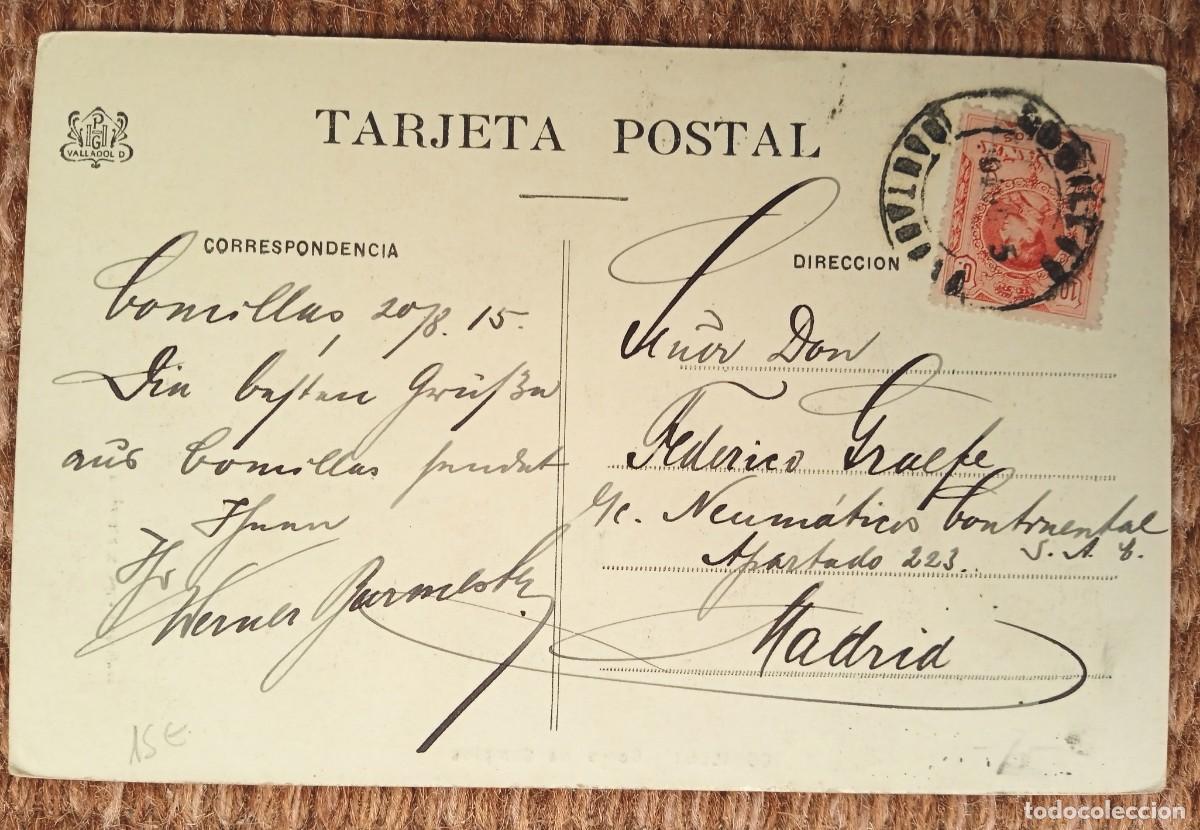 PHG
VALLADOLID
TARJETA POSTAL
CORRESPONDENCIA
Comillas, 20/8. 15.
Die besten Grüße
aus Comillas sendet
Ihnen
Ihr
Werner
DIRECCION
Señor Don
Federico Graefe
Neumáticos Continental
S. A.
Apartado 223.
Madrid
10
15€
todocoleccion